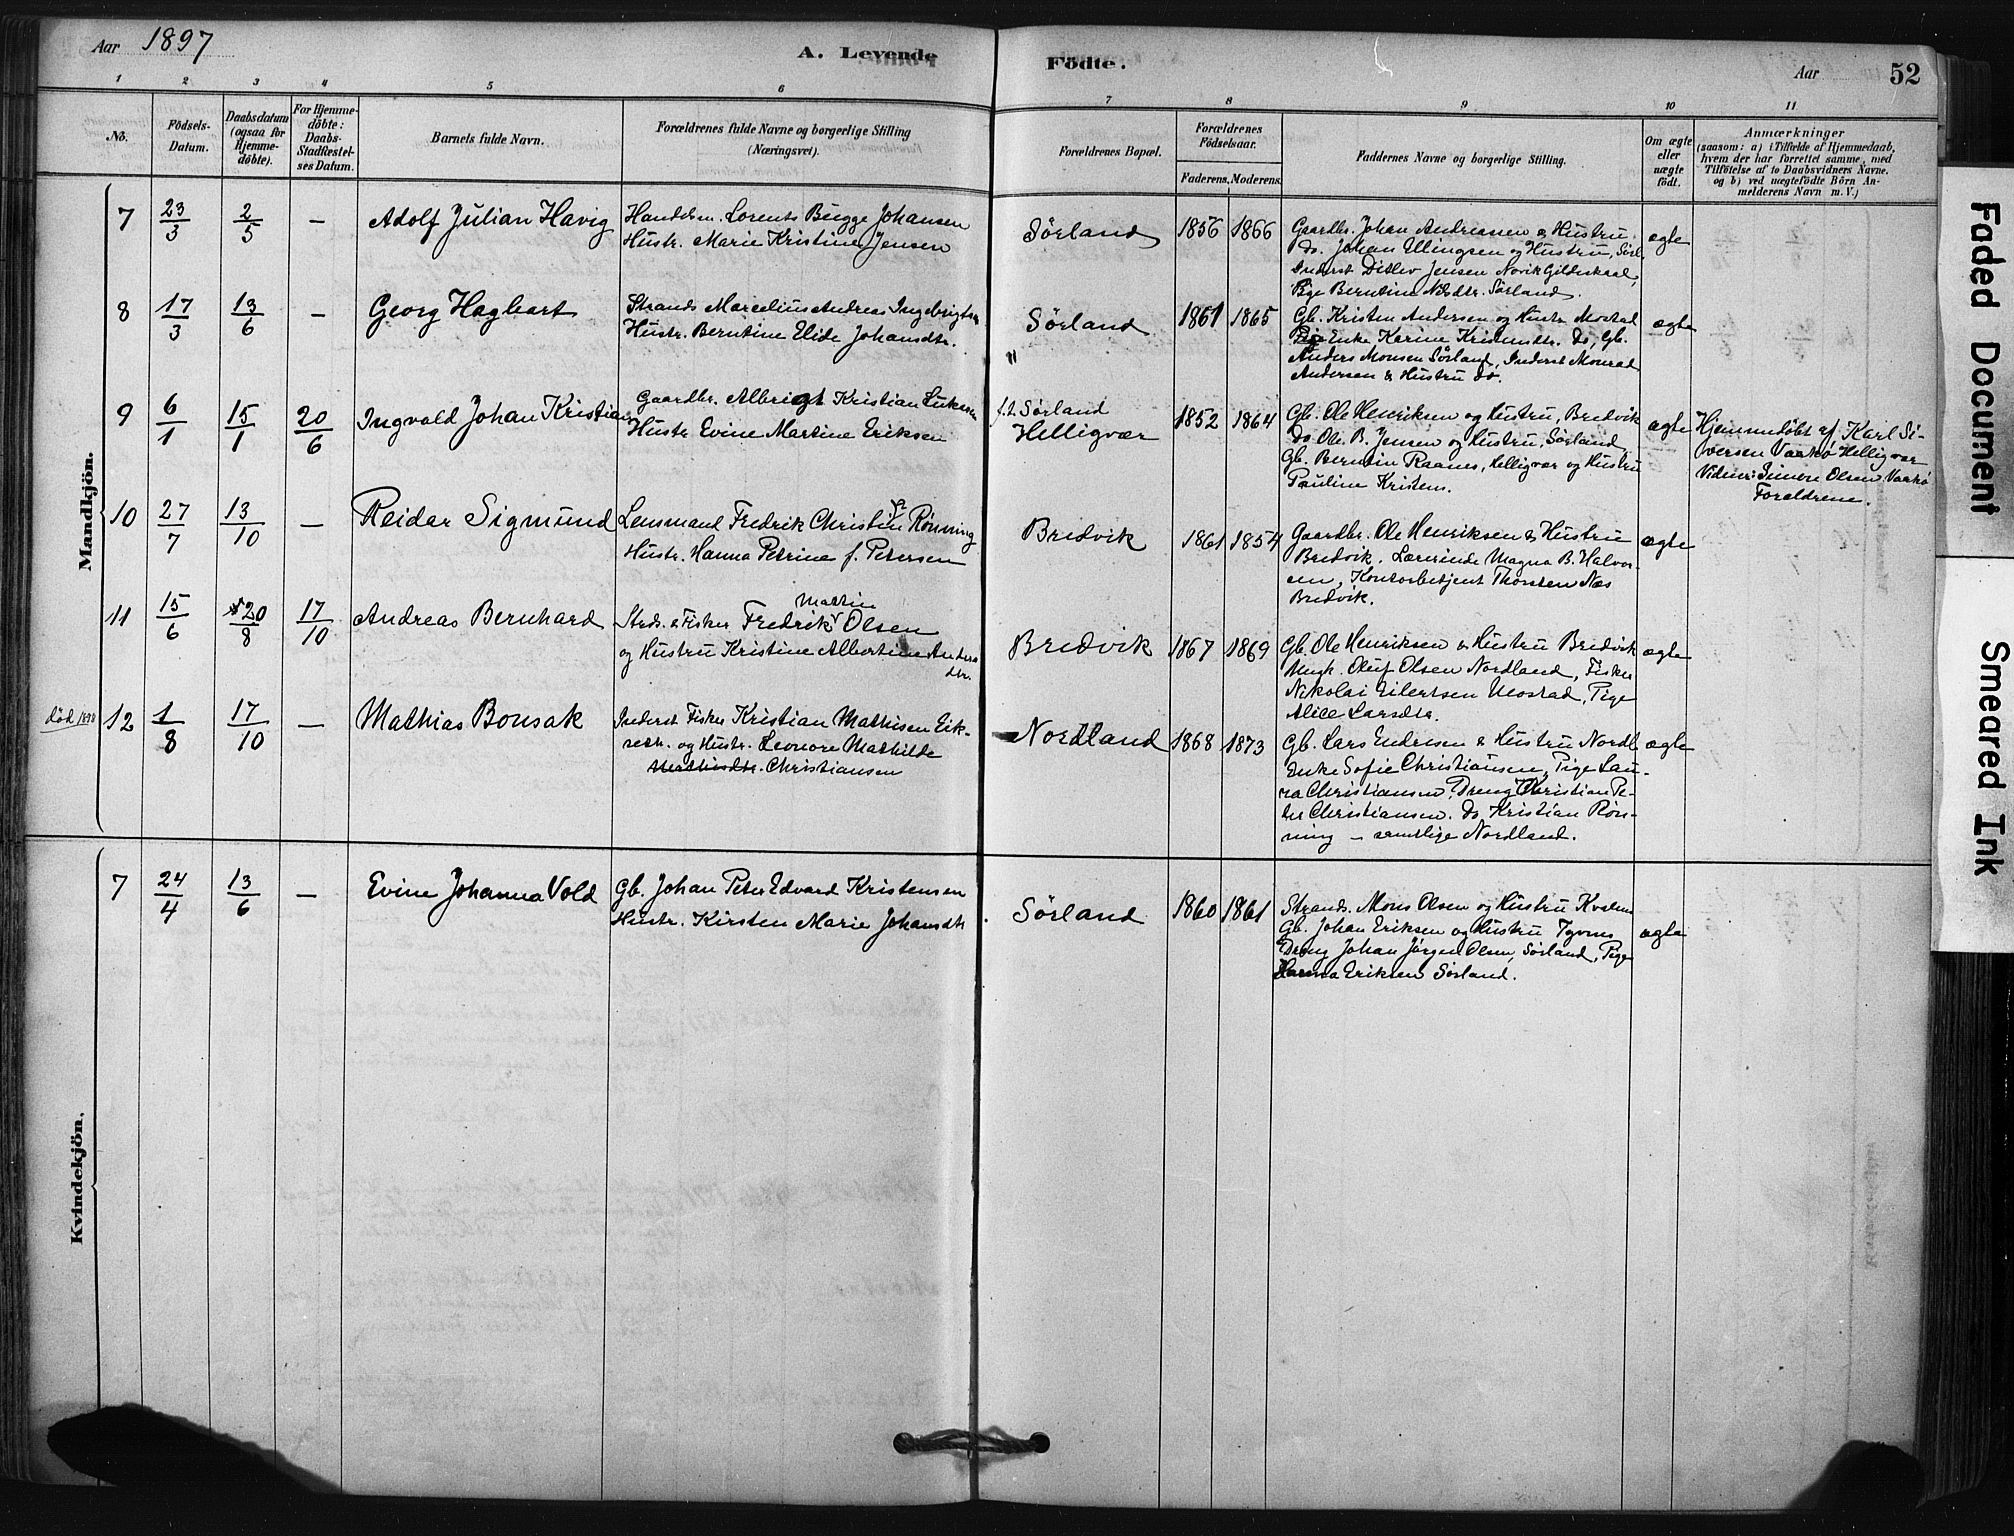 Aar 1897
A. Levende Födte.
Aar
52
1 2 3 4 5 6 7 8 9 10 11
No.
Födsels-Datum.
Daabsdatum (ogsaa för Hjemme-döbte).
For Hjemme-döbte: Daabs-Stadfæstel-ses Datum.
Barnets fulde Navn.
Forældrenes fulde Navne og borgerlige Stilling (Næringsvei).
Forældrenes Bopæl.
Forældrenes Födselsaar.
Faderens. Moderens.
Faddernes Navne og borgerlige Stilling.
Om ægte eller uægte födt.
Anmærkninger
(saasom: a) i Tilfælde af Hjemmedaab, hvem der har forrettet samme, med Tilföielse af to Daabsvidners Navne. og b) ved uægtefödte Börn An-melderens Navn m. V.)
Mandkjön.
7 23/3 2/5 — Adolf Julian Havig
Handelsm. Lorents Bugge Johansen
Hustr. Marie Kristine Jensen
Sørland 1856 1866
Gaardbr. Johan Andreassen & Hustru
Do. Johan Ellingsen og Hustru, Sørl.
Inderst Ditlev Jensen Novik Gildeskaal,
Pige Berntine Sørland.
ægte
8 17/3 13/6 — Georg Hagbart
Strands. Marcelius Andreas Ingebrigtsen
Hustr. Berntine Elide Johansdtr.
Sørland 1861 1865
"
Gb. Kristen Andersen og Hustr. Mostad
Enke Karine Kristensdtr. Do, Gb.
Anders Monsen Sørland, Inderst Monrad
Andersen & Hustru Do.
ægte
9 6/1 15/1 20/6 Ingvald Johan Kristian
Gaardbr. Albrigt Kristian Lukassen
Hustr Evine Martine Eriksen
f.t. Sørland
Helligvær 1852 1864
Gb. Ole Henriksen og Hustru, Bredvik
Do Ole B. Jensen og Hustru, Sørland
Gb. Berntin Raanes, Helligvær og Hustru
Pauline Kristens.
ægte
Hjemmedøbt af Karl Si-
versen Vaakø Helligvær
Vidner: Simon Olsen Vaakø
Forældrene.
10 27/7 13/10 — Reidar Sigmund
Lensmand Fredrik Christian Rönning
Hustr. Hanna Petrine f. Petersen
Bredvik 1861 1854
Gaardbr. Ole Henriksen & Hustru
Bredvik. Lærerinde Magna B. Halvor-
sen, Kontorbetjent Thorsten Næs
Bredvik.
ægte
11 15/6 20/8 17/10 Andreas Bernhard
Martin
Strds. & Fisker Fredrik Olsen
og Hustru Kristine Albertine Anders
dtr.
Bredvik 1867 1869
Gb. Ole Henriksen & Hustru Bredvik
Ungk. Oluf Olsen Nordland, Fisker
Nikolai Eilertsen Mostad, Pige
Alice Larsdtr.
ægte
død 1898 12 1/8 17/10 — Mathias Bonsak
Inderst Fisker Kristian Mathisen Eik-
seth. og Hustr. Leonore Mathilde
Mathisdtr. Christiansen
Nordland 1868 1873
Gb. Lars Endresen & Hustru Nordl.
Enke Sofie Christiansen, Pige Lau-
ra Christiansen, Dreng Christian Pe-
ter Christiansen. Do Kristian Rön-
ning — samtlige Nordland.
ægte
Kvindekjön.
7 24/4 13/6 — Evine Johanna Vold
Gb. Johan Peter Edvard Kristensen
Hustr. Kirsten Marie Johansdtr
Sørland 1860 1861
Strands. Mons Olsen og Hustru
Gb. Johan Eriksen og Hustru Tyvnes
Dreng Johan Jørgen Olsen, Sørland, Pige
Hanna Eriksen Sørland.
ægte
Faded Document
Smeared Ink